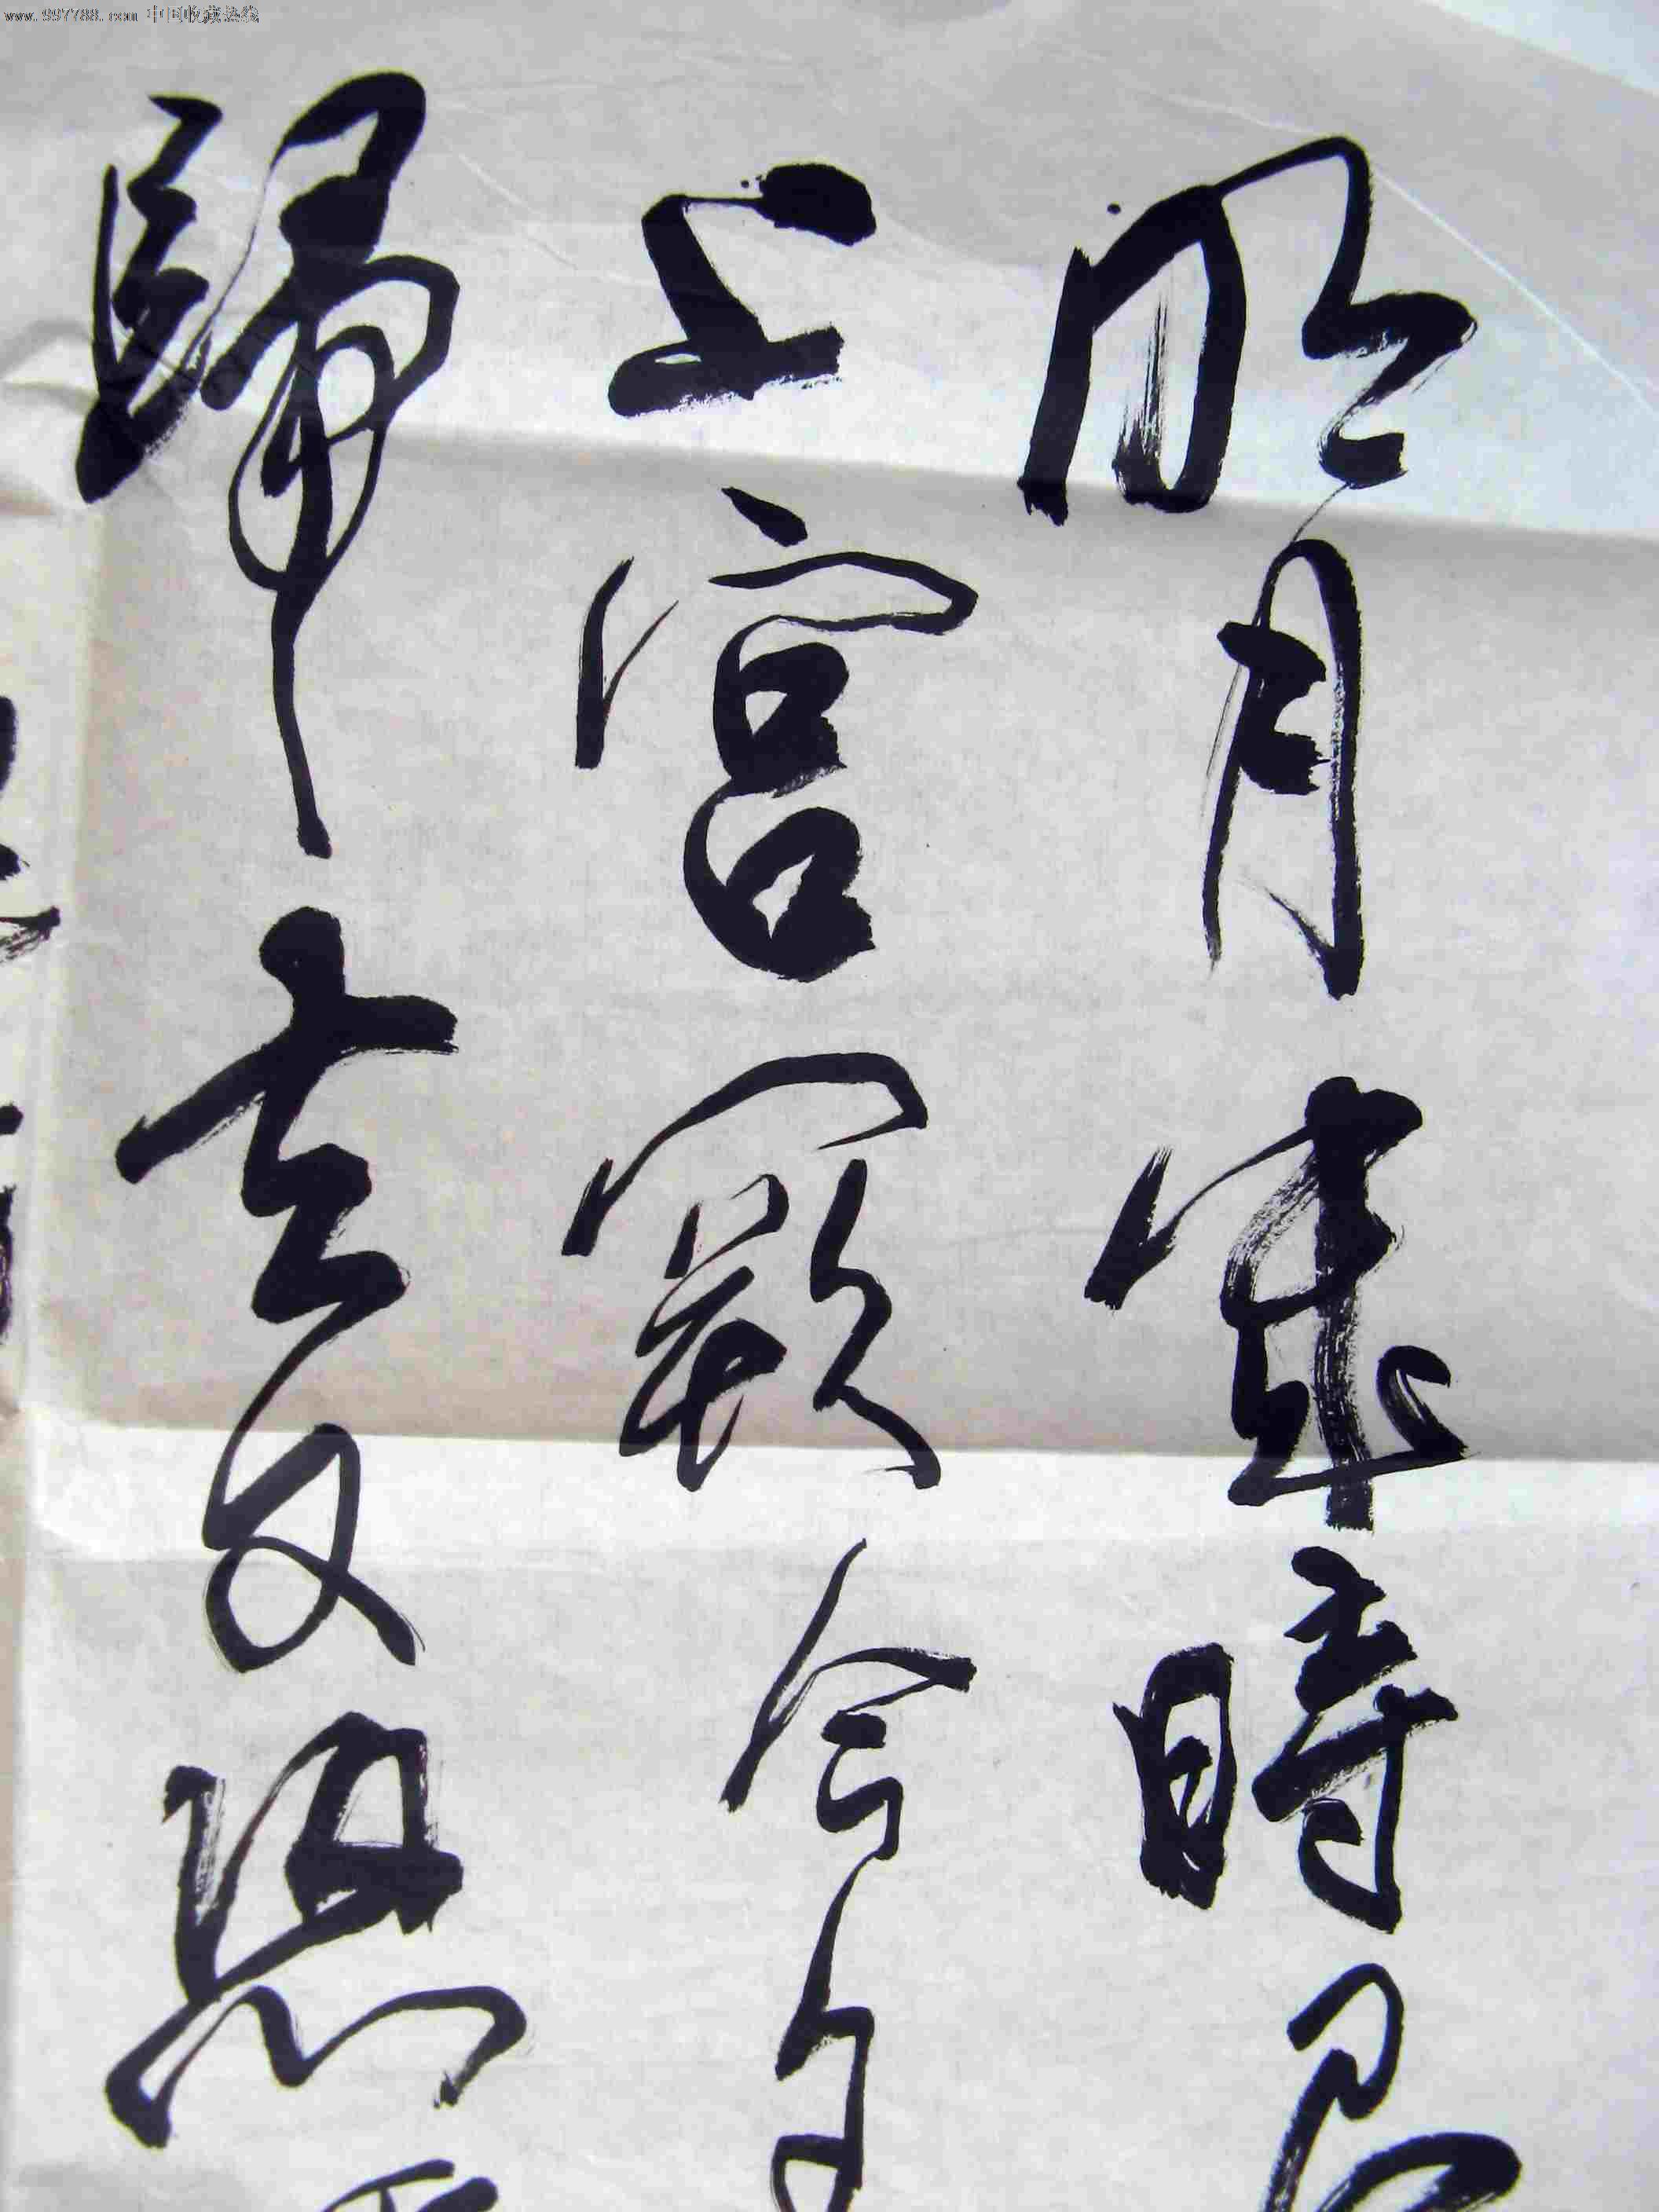 www.997788.com 中国收藏热线
明月幾時
上宮闕今夕
歸去又恐